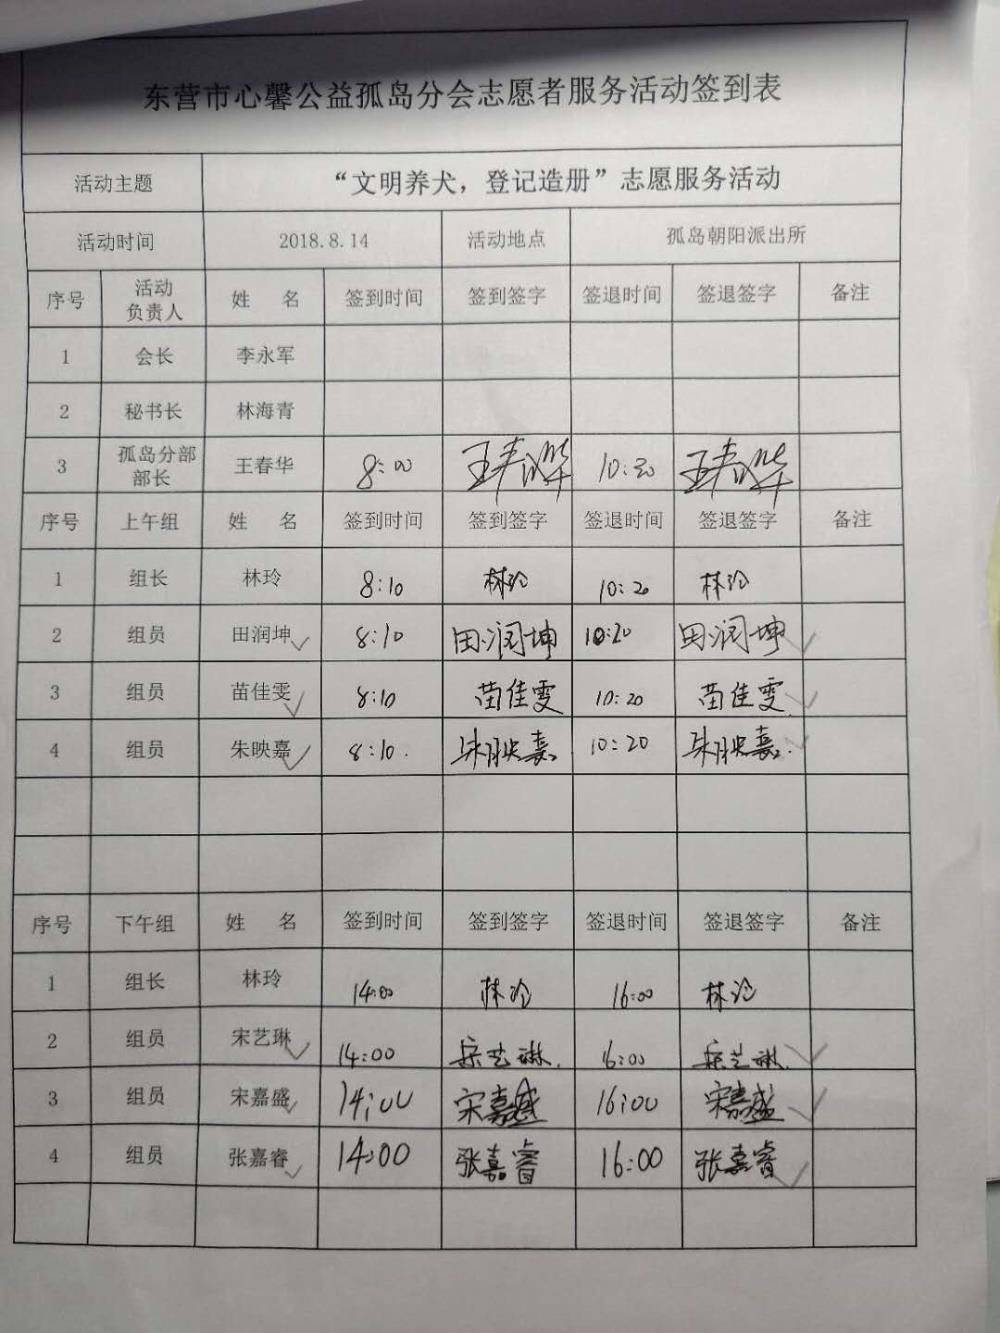 东营市心馨公益孤岛分会志愿者服务活动签到表
活动主题 “文明养犬，登记造册”志愿服务活动
活动时间 2018.8.14 活动地点 孤岛朝阳派出所
序号 活动负责人 姓 名 签到时间 签到签字 签退时间 签退签字 备注
1 会长 李永军
2 秘书长 林海青
3 孤岛分部部长 王春华 8:00 王春晔 10:20 王春晔
序号 上午组 姓 名 签到时间 签到签字 签退时间 签退签字 备注
1 组长 林玲 8:10 林玲 10:20 林玲
2 组员 田润坤 8:10 田润坤 10:20 田润坤
3 组员 苗佳雯 8:10 苗佳雯 10:20 苗佳雯
4 组员 朱映嘉 8:10. 朱映嘉 10:20 朱映嘉.
序号 下午组 姓 名 签到时间 签到签字 签退时间 签退签字 备注
1 组长 林玲 14:00 林玲 16:00 林玲
2 组员 宋艺琳 14:00 宋艺琳. 16:00 宋艺琳.
3 组员 宋嘉盛 14:00 宋嘉盛 16:00 宋嘉盛
4 组员 张嘉睿 14:00 张嘉睿 16:00 张嘉睿